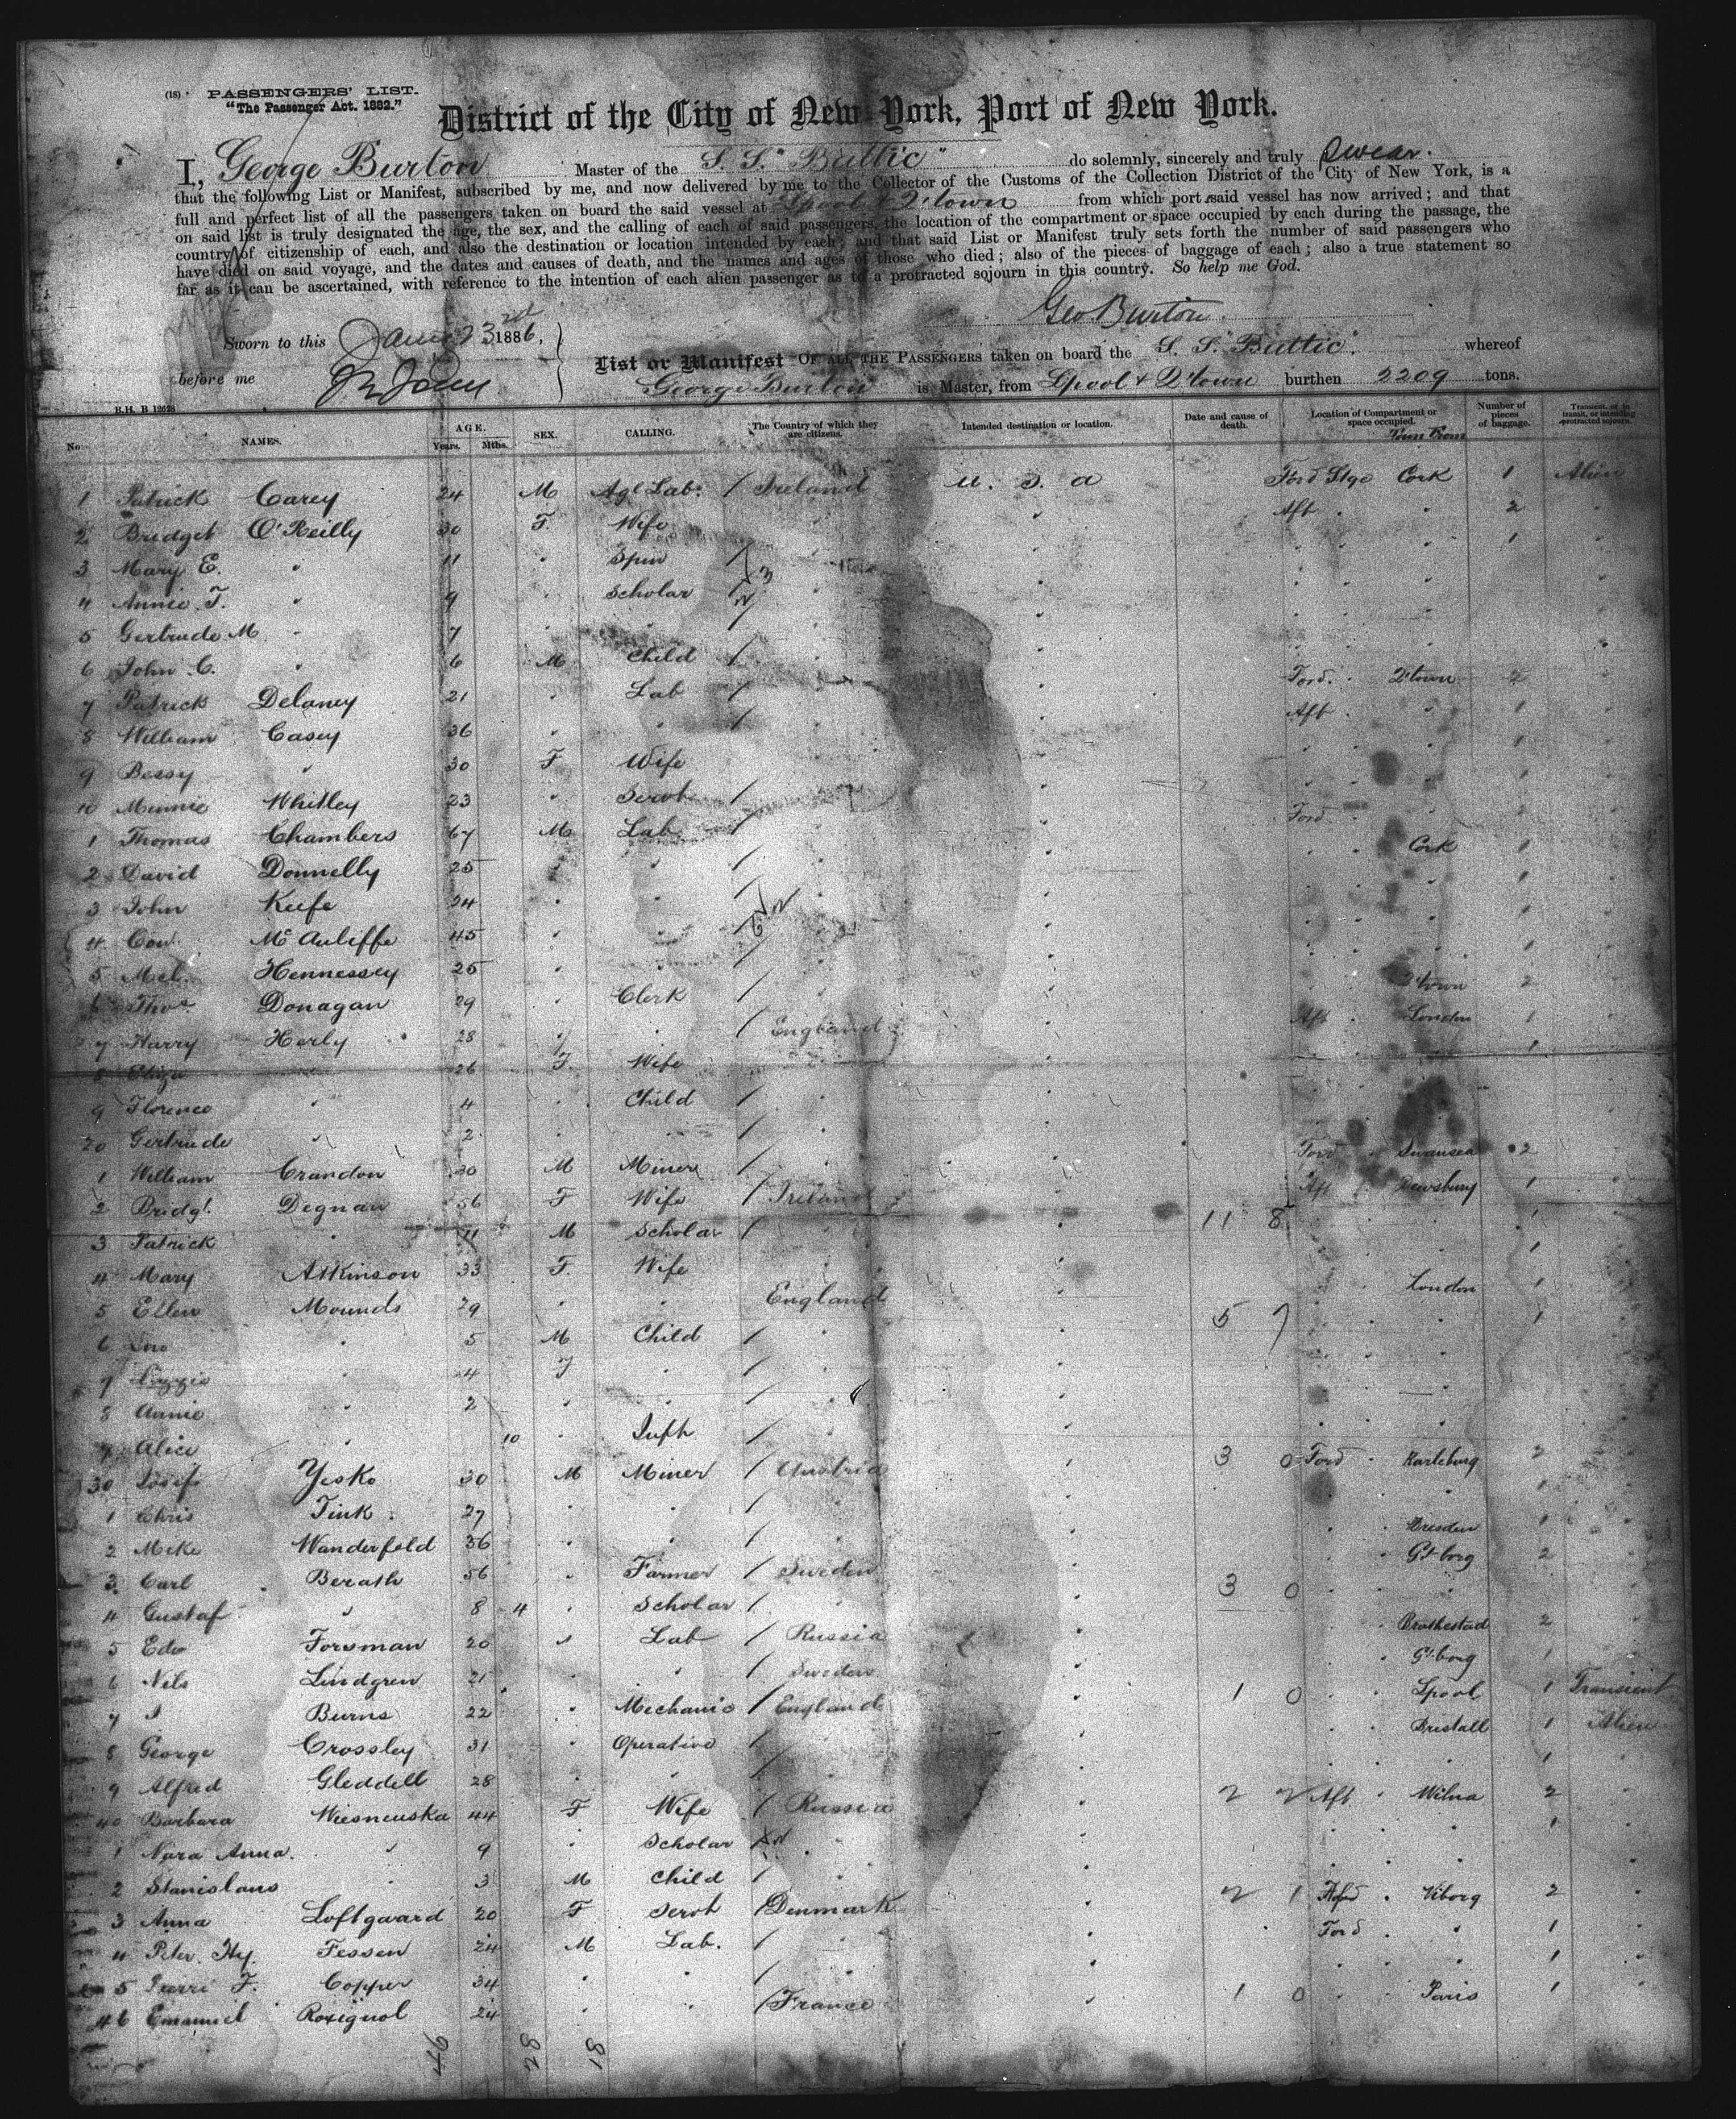 (18) PASSENGERS' LIST.
"The Passenger Act. 1882."
District of the City of New York, Port of New York.
I, George Burton Master of the S. S. "Baltic" do solemnly, sincerely and truly swear.
that the following List or Manifest, subscribed by me, and now delivered by me to the Collector of the Customs of the Collection District of the City of New York, is a
full and perfect list of all the passengers taken on board the said vessel at Lpool & Q'town from which port said vessel has now arrived; and that
on said list is truly designated the age, the sex, and the calling of each of said passengers, the location of the compartment or space occupied by each during the passage, the
country of citizenship of each, and also the destination or location intended by each; and that said List or Manifest truly sets forth the number of said passengers who
have died on said voyage, and the dates and causes of death, and the names and ages of those who died; also of the pieces of baggage of each; also a true statement so
far as it can be ascertained, with reference to the intention of each alien passenger as to a protracted sojourn in this country. So help me God.
Geo Burton
Sworn to this 23 1886,
before me
List or Manifest OF ALL THE PASSENGERS taken on board the S. S. "Baltic" whereof
George Burton is Master, from Lpool & Q'town burthen 2209 tons.
H.H. B 12628
No NAMES. AGE. Years. Mths. SEX. CALLING. The Country of which they are citizens. Intended destination or location. Date and cause of death. Location of Compartment or space occupied. From Number of pieces of baggage. Transient, or in transit, or intending protracted sojourn.
1 Patrick Carey 24 M Agl Labr / Ireland U. S. A Ford Stge Cork 1 Alien
2 Bridget O'Reilly 30 F. Wife " " Aft " " 2 "
3 Mary E. " 11 " Spin / " " " " " 1 "
4 Annie T. " 9 " Scholar / " " " " "
5 Gertrude M " 7 " " " " " " "
6 John C. " 6 M Child / " " " " "
7 Patrick Delaney 21 " Lab / " " Ford. " Q'town 2 "
8 William Casey 36 " " / " " Aft " " 1 "
9 Bessy " 30 F Wife " " " " " 1 "
10 Minnie Whitley 23 " Servt / " " " " " 1 "
1 Thomas Chambers 67 M Lab / " " Ford " " 1 "
2 David Donnelly 25 " " / " " " " Cork 1 "
3 John Keefe 24 " " / " " " " " 1 "
4 Con. Mc Auliffe 45 " " / " " " " " 1 "
5 Mcl. Hennessey 25 " " / " " " " " 1 "
6 Thos. Donagan 29 " Clerk / " " " " Q'town 2 "
7 Harry Herly 28 " " / England " Aft " London 1 "
8 Eliza " 26 F. Wife " " " " " 1 "
9 Florence " 4 " Child / " " " " "
20 Gertrude " 2 " " / " " " " "
1 William Crandon 30 M Miner / " " Ford " Swansea 2 "
2 Bridgt. Degnan 56 F Wife / Ireland " Aft " Dewsbury 1 "
3 Patrick " 11 M Scholar / " " 11 8 " " " 1 "
4 Mary Atkinson 33 F. Wife " " " " " 1 "
5 Ellen Mounds 29 " " England " " " London 1 "
6 " 5 M Child / " " 5 7 " " " 1 "
7 Lizzie " 4 F " / " " " " "
8 Annie " 2 " " / " " " " "
9 Alice " 10 " Inft / " " " " "
30 Josef Yesko 30 M Miner / Austria " 3 0 Ford " Karlsburg 2 "
1 Chris Tink 27 " " / " " " " " 1 "
2 Mike Wanderfold 36 " " / " " " " Dresden 1 "
3 Carl Berath 56 " Farmer / Sweden " " " Gt.borg 2 "
4 Gustaf " 8 4 " Scholar / " " 3 0 " " "
5 Edw Forsman 20 " Lab / Russia " " " Brathestad 2 "
6 Nils Lindgren 21 " " / Sweden " " " Gt.borg 1 "
7 Burns 22 " Mechanic / England " 1 0 " " Lpool 1 Transient
8 George Crossley 31 " Operative / " " " " Bristall 1 Alien
9 Alfred Gleddell 28 " " / " " " " " 1 "
40 Barbara Wiesneuska 44 F Wife / Russia " 2 2 Aft " Wilna 2 "
1 Nara Anna. " 9 " Scholar / " " " " " 1 "
2 Stanislaus " 3 M Child / " " " " "
3 Anna Loftgaard 20 F Servt / Denmark " 2 1 " Viborg 2 "
4 Peter Hy. Fessen 24 M Lab. / " " Ford " " 1 "
5 F. Copper 34 " " / " " " " " 1 "
46 Emanuel Roxignol 24 " " / France " 1 0 " " Paris 1 "
46 28 18